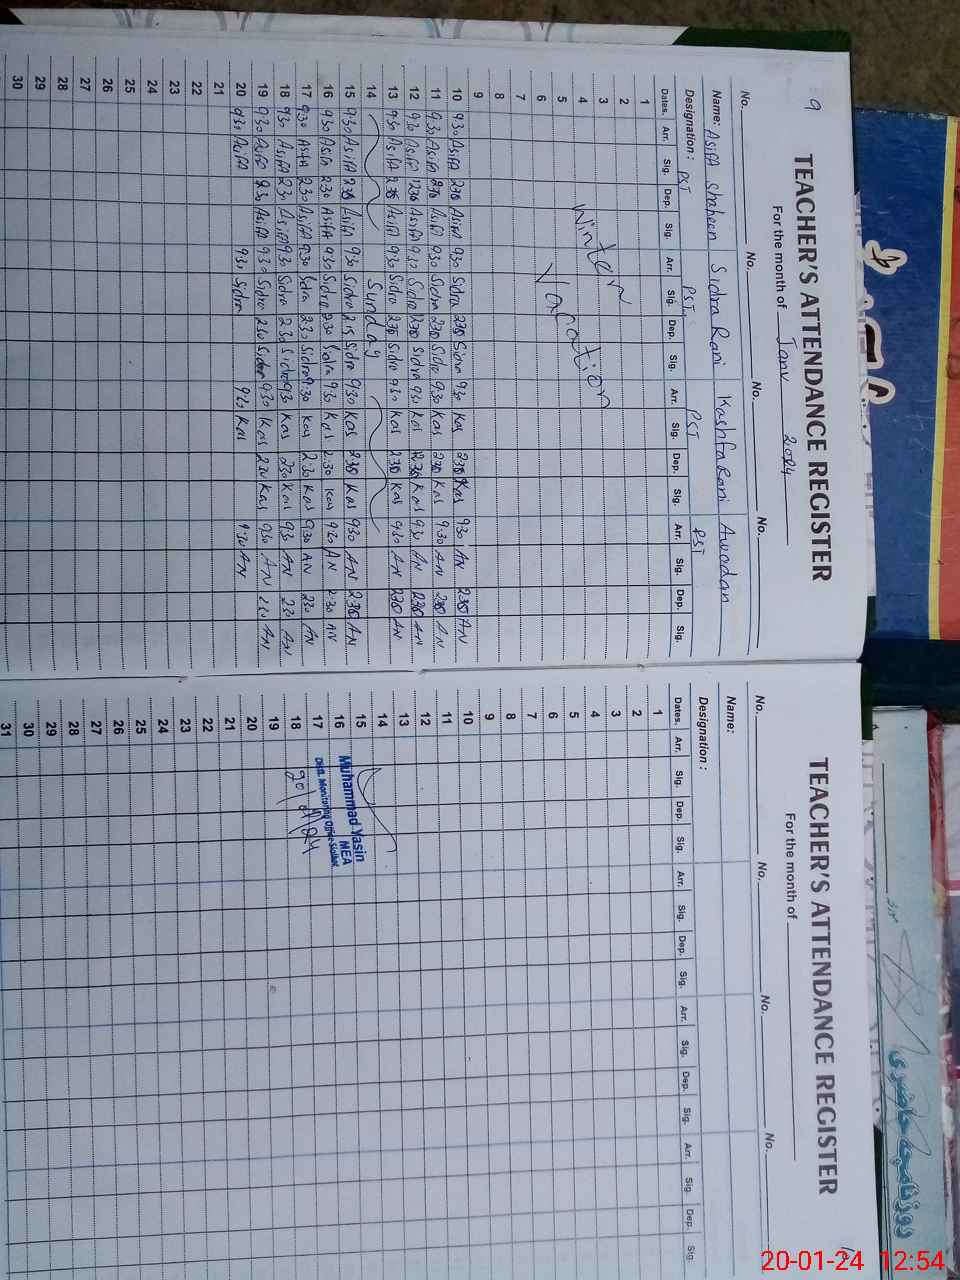 9
TEACHER'S ATTENDANCE REGISTER
For the month of Janv 2024
No. No. No. No.
Name: Asifa Shaheen Sidra Rani Kashfa Rani
Designation: PST PST PST PST
Dates. Arr. Sig. Dep. Sig. Arr. Sig. Dep. Sig. Arr. Sig. Dep. Sig. Arr. Sig. Dep. Sig.
1
2
3
4
5
6
7
8
9
Winter
Vacation
10 930 Asifa 230 Asifa 930 Sidra 230 Sidra 930 Kas 230 Kas 930 AN 230 AN
11 930 Asifa 230 Asifa 930 Sidra 230 Sidra 930 Kas 230 Kas 930 AN 230 AN
12 930 Asifa 1230 Asifa 930 Sidra 1230 Sidra 930 Kas 1230 Kas 930 AN 1230 AN
13 930 Asifa 230 Asifa 930 Sidra 230 Sidra 930 Kas 230 Kas 930 AN 230 AN
14 Sunday
15 930 Asifa 230 Asifa 930 Sidra 215 Sidra 930 Kas 230 Kas 930 AN 230 AN
16 930 Asifa 230 Asifa 930 Sidra 230 Sidra 930 Kas 2:30 Kas 930 AN 2:30 AN
17 930 Asifa 230 Asifa 930 Sidra 230 Sidra 9:30 Kas 2:30 Kas 930 AN 230 AN
18 930 Asifa 230 Asifa 930 Sidra 230 Sidra 930 Kas 230 Kas 930 AN 230 AN
19 930 Asifa 230 Asifa 930 Sidra 230 Sidra 930 Kas 230 Kas 930 AN 230 AN
20 930 Asifa 930 Sidra 930 Kas 930 AN
21
22
23
24
25
26
27
28
29
30
TEACHER'S ATTENDANCE REGISTER
For the month of
No. No. No. No.
Name:
Designation:
Dates. Arr. Sig. Dep. Sig. Arr. Sig. Dep. Sig. Arr. Sig. Dep. Sig. Arr. Sig. Dep. Sig.
1
2
3
4
5
6
7
8
9
10
11
12
13
14
15
16
17
18
19
20
21
22
23
24
25
26
27
28
29
30
31
Muhammad Yasin
MEA
Distt. Monitoring Office Sialkot
20/1/24
20-01-24 12:54